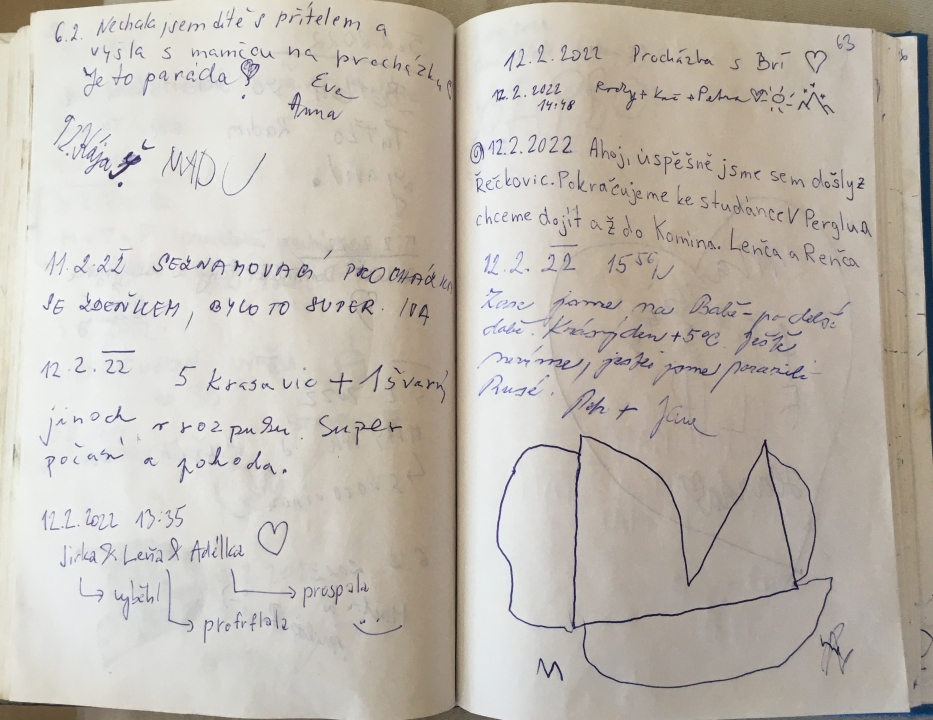 6.2. Nechala jsem dítě s přítelem a
vyšla s mamčou na procházku
Je to paráda!
Eva
Anna
9.2. Kája
11.2.22 SEZNAMOVACÍ PROCHÁZKA
SE ZDEŇKEM, BYLO TO SUPER. IVA
12.2.22
5 krasavic + 1 švarný
jinoch v rozpuku. Super
počasí a pohoda.
12.2.2022 13:35
Jirka & Leňa & Adélka
vyběhl
prospala
profrflala
63
12.2.2022 Procházka s Brí
12.2.2022
14:48
+ Petra
12.2.2022 Ahoj, úspěšně jsme sem došly z
Řečkovic. Pokračujeme ke studánce V Perglu a
chceme dojít až do Komína. Lenča a Renča
12.2.22 15 56
Zase jsme na Babě - po delší
době. Krásný den +5°C. Ještě
nevíme, jestli jsme porazili
Rusé.
+ Jana
M